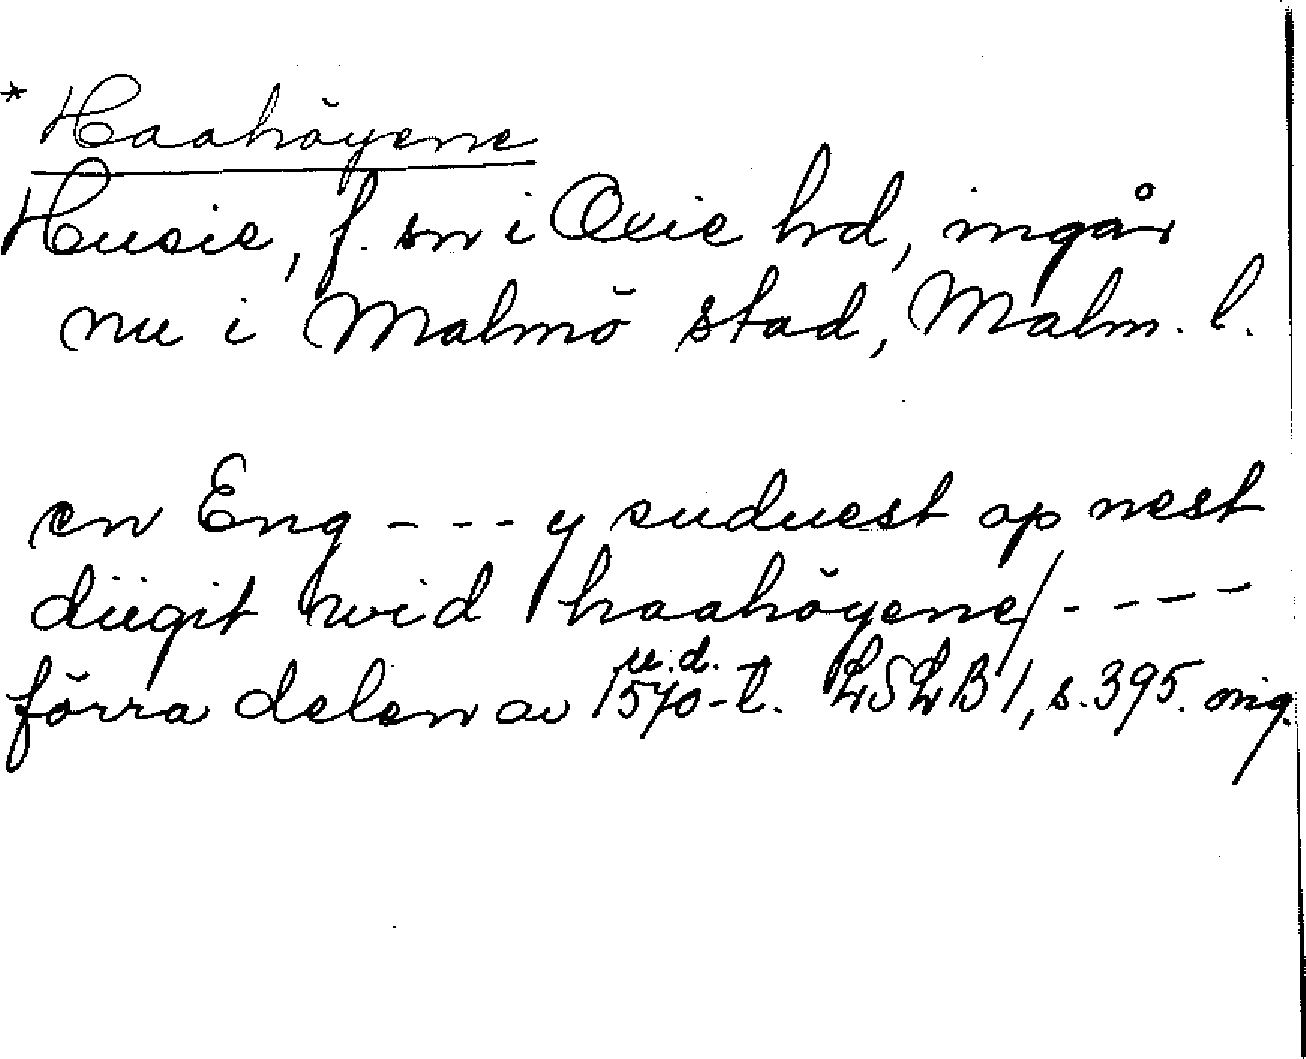 * Haahöyene
Husie, f. sn i Oxie hd, ingår
nu i Malmö stad, Malm. l.
en Eng - - - y suduest op nest
diigit wid haahöyene/ - - - -
förra delen av 1570-t. u.d. LSLB 1, s. 395.